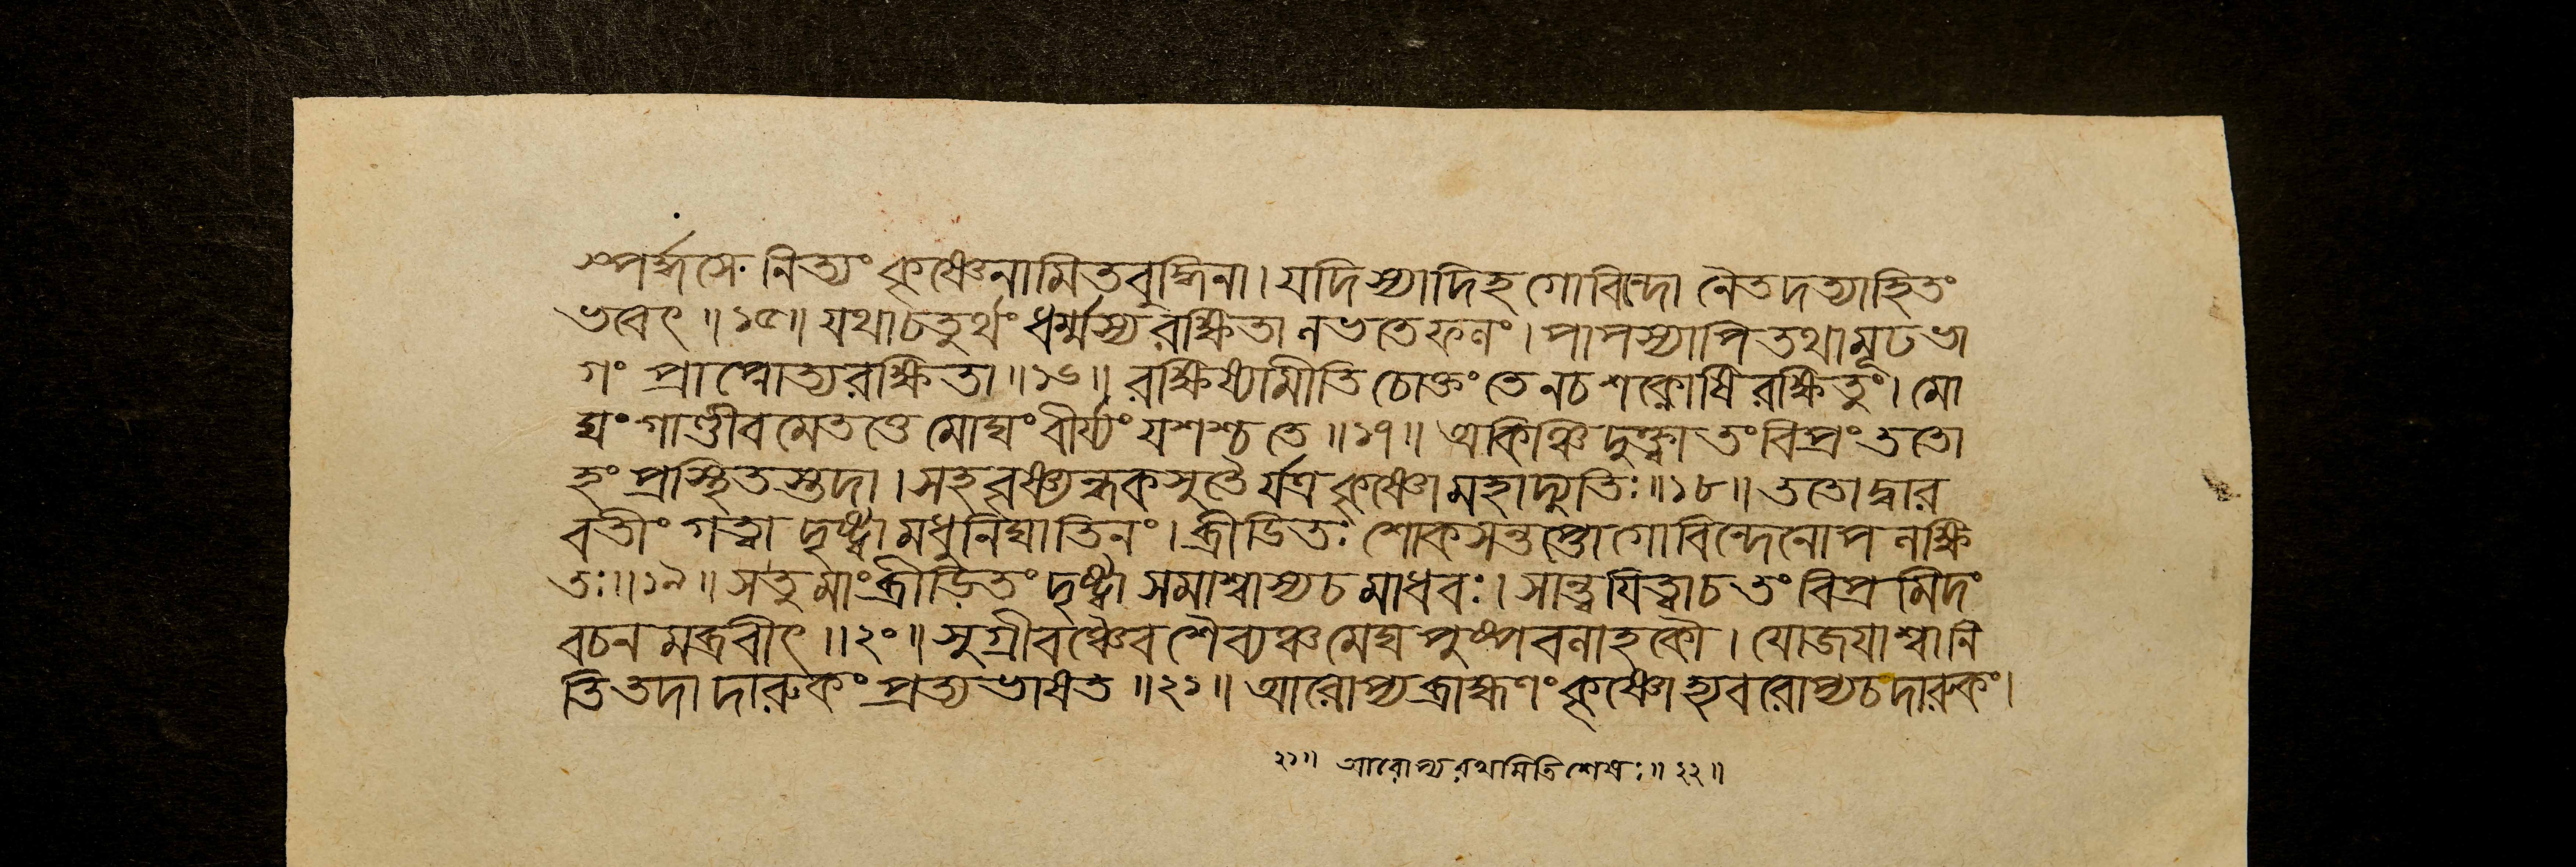 স্পর্দ্ধসে নিত্যং কৃষ্ণেনামিতবুদ্ধিনা। যদিস্যাদিহ গোবিন্দো নৈতদত্যাহিতং
ভবেৎ॥১৫॥ যথাচতুর্থং ধর্ম্মস্য রক্ষিতা নভতেফনং। পাপস্যাপি তথা মূঢ ভা
গং প্রাপ্নোত্যরক্ষিতা॥১৬॥ রক্ষিষ্যামীতি চোক্তং তে নচ শক্নোষি রক্ষিতুং। মো
ঘং গাণ্ডীবমেতত্তে মোঘং বীর্য্যং যশশ্চ তে॥১৭॥ অকিঞ্চিদুক্ত্বা তং বিপ্রং ততো
হং প্রস্থিতস্তদা। সহ বৃষ্ণ্যন্ধকসুতৈ র্যত্র কৃষ্ণো মহাদ্যুতিঃ॥১৮॥ ততোদ্বার
বতীং গত্বা দৃষ্ট্বা মধুনিঘাতিনং। ব্রীডিতঃ শোকসন্তপ্তো গোবিন্দেনোপ নক্ষি
তঃ॥১৯॥ সতু মাং ব্রীড়িতং দৃষ্ট্বা সমাশ্বাস্যচ মাধবঃ। সান্ত্বযিত্বাচ তং বিপ্র মিদং
বচন মব্রবীৎ॥২০॥ সুগ্রীবঞ্চৈব শৈব্যঞ্চ মেঘ পুষ্পবনাহকৌ। যোজযাশ্বানি
তি তদা দারুকং প্রত্যভাষত॥২১॥ আরোপ্য ব্রাহ্মণং কৃষ্ণো হ্যবরোপ্যচ দারুকং।
২১॥ আরোপ্যরথমিতিশেষঃ॥২২॥